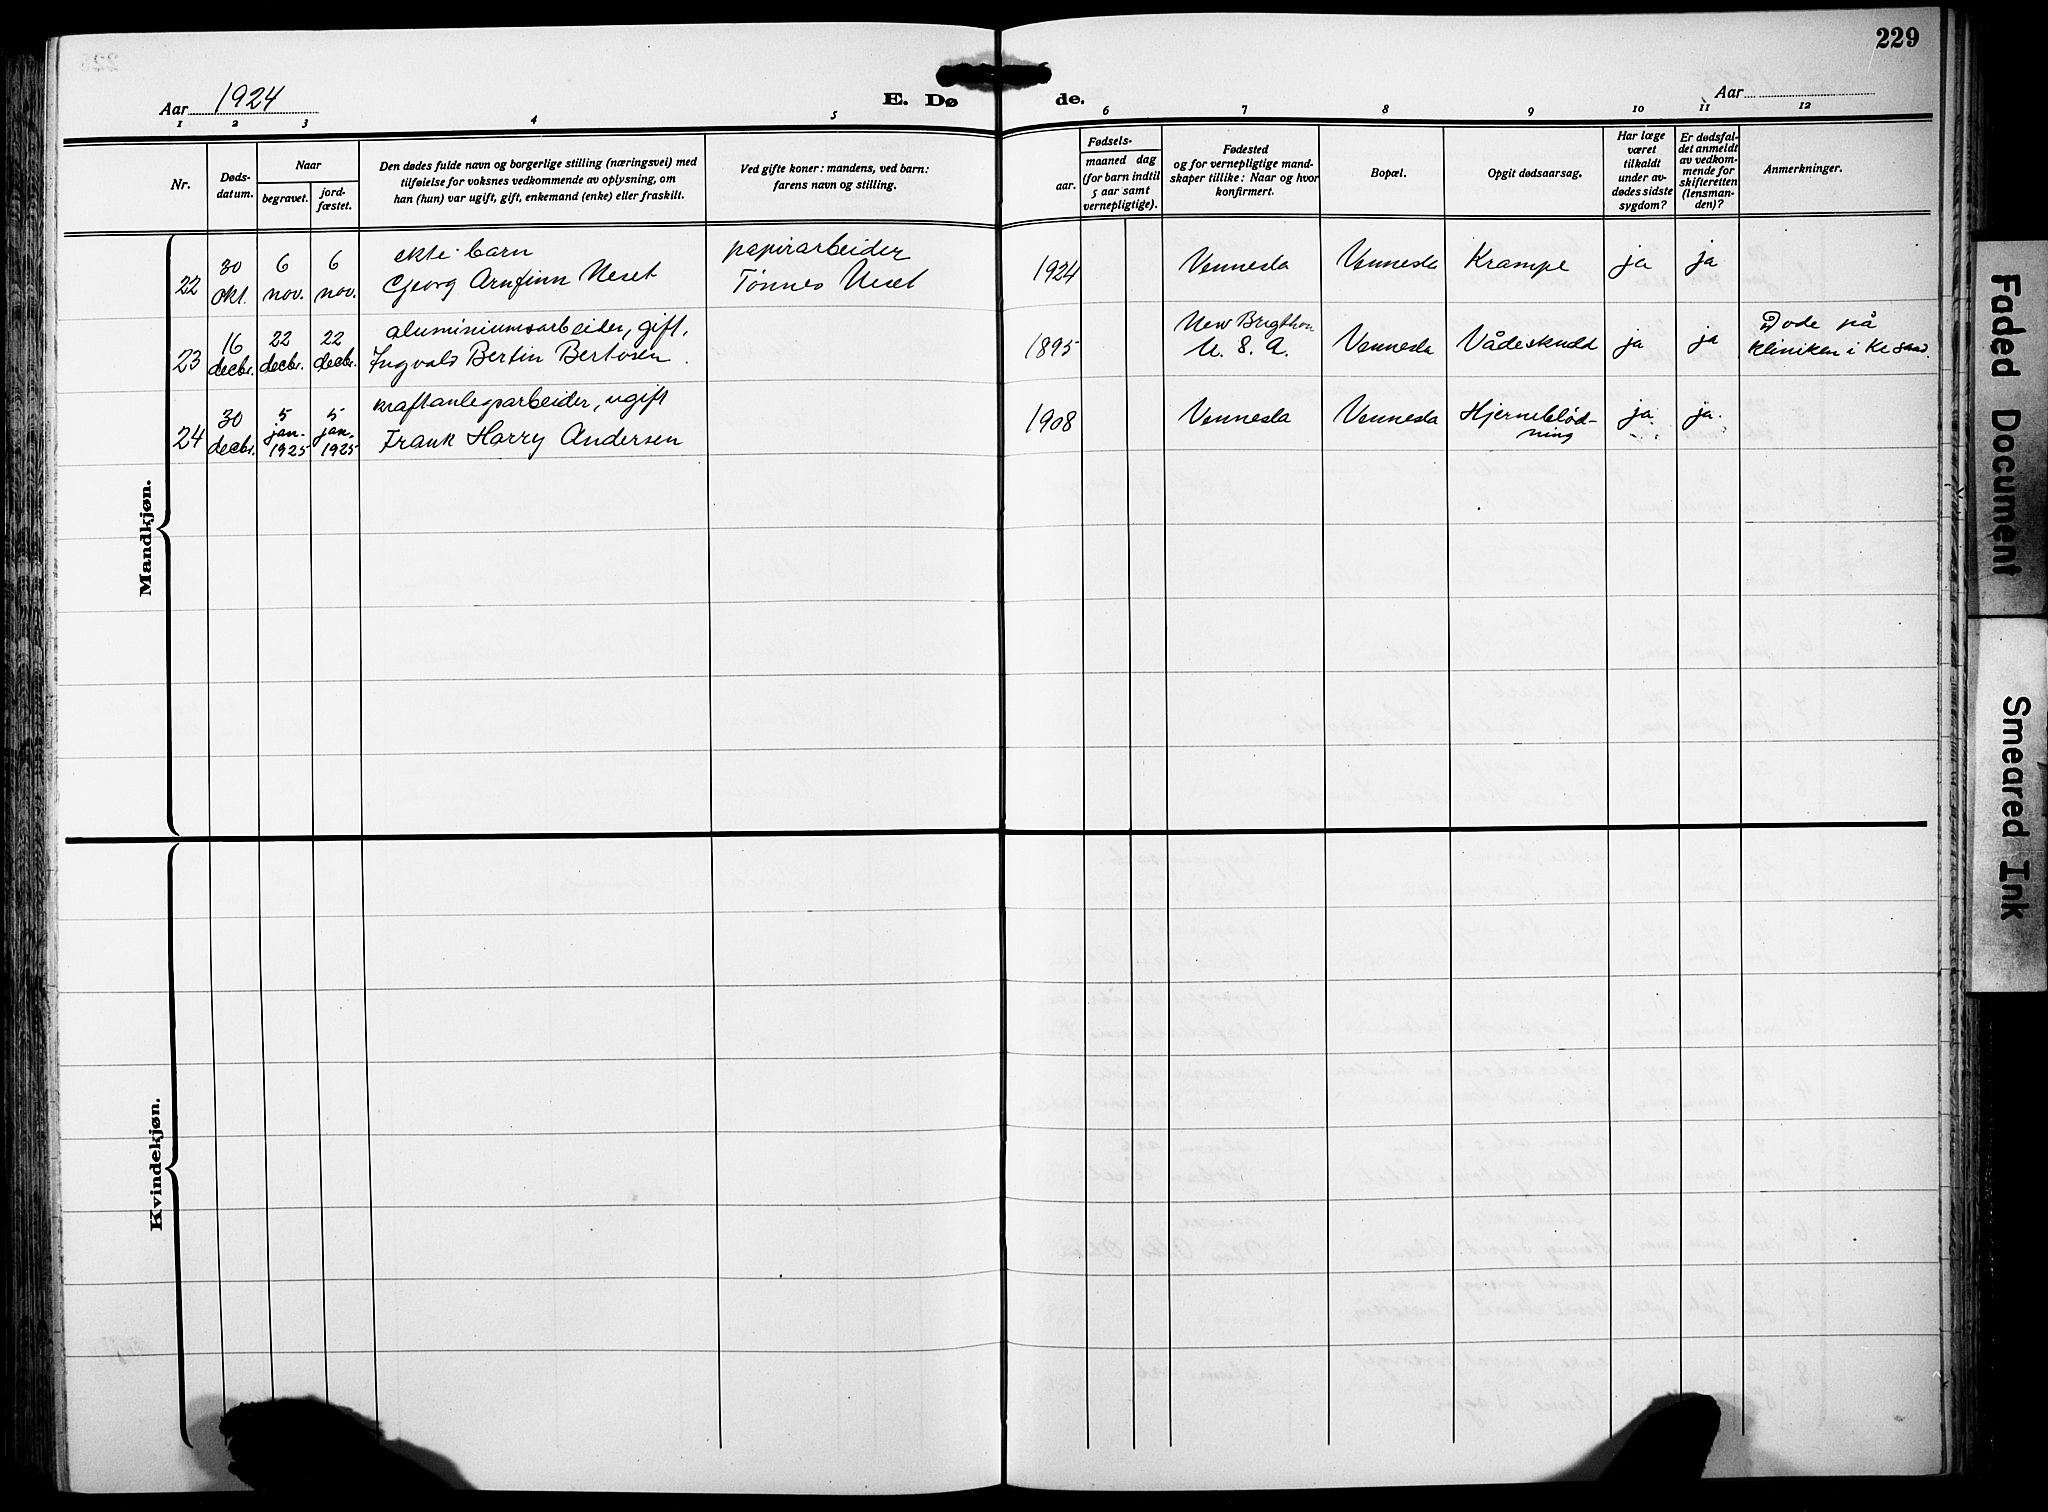 229
Aar 1924
E. Dø de.
Aar
1 2 3 4 5 6 7 8 9 10 11 12
Nr.
Døds-
datum.
Naar
begravet.
jord-
fæstet.
Den dødes fulde navn og borgerlige stilling (næringsvei) med
tilføielse for voksnes vedkommende av oplysning, om
han (hun) var ugift, gift, enkemand (enke) eller fraskilt.
Ved gifte koner: mandens, ved barn:
farens navn og stilling.
Fødsels-
aar.
maaned dag
(for barn indtil
5 aar samt
vernepligtige).
Fødested
og for vernepligtige mand-
skaper tillike: Naar og hvor
konfirmert.
Bopæl.
Opgit dødsaarsag.
Har læge
været
tilkaldt
under av-
dødes sidste
sygdom?
Er dødsfal-
det anmeldt
av vedkom-
mende for
skifteretten
(lensman-
den)?
Anmerkninger.
Mandkjøn.
22
30
okt.
6
nov.
6
nov.
ekte barn
Georg Arnfinn Neset
papirarbeider
Tønnes Neset
1924
Vennesla
Vennesla
Krampe
ja
ja
23
16
decbr.
22
decbr.
22
decbr.
aluminiumsarbeider, gift.
Ingvald Bertin Bertosen.
1895
New Brigthon
U. S. A.
Vennesla
Vådeskudt
ja
ja
Døde på
kliniken i Kr.sand.
24
30
decbr.
5
jan.
1925
5
jan.
1925
kraftanlegsarbeider, ugift
Frank Harry Andersen
1908
Vennesla
Vennesla
Hjerneblød-
ning
ja.
ja.
Kvindekjøn.
Faded Document
Smeared Ink